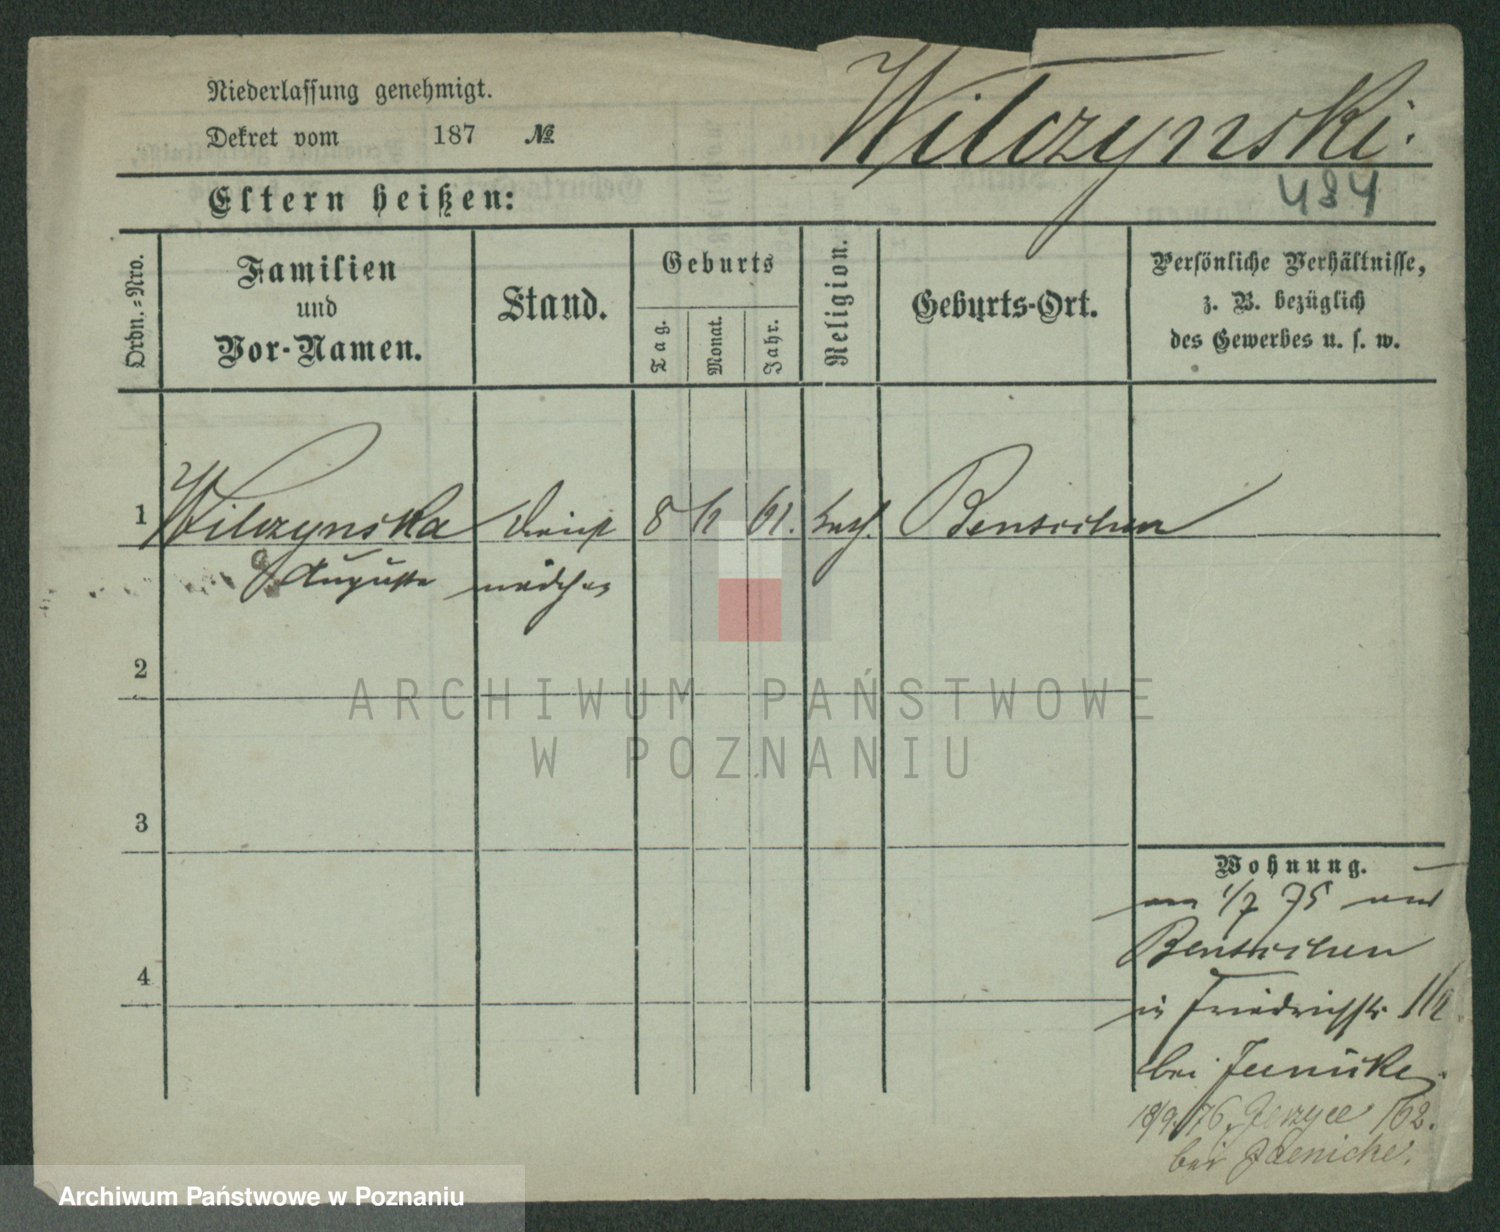 Niederlassung genehmigt.
Dekret vom 187 №
Wilczynski.
Eltern heißen:
484
Ordn.-Nro.
Familien
und
Vor-Namen.
Stand.
Geburts
Tag.
Monat.
Jahr.
Religion.
Geburts-Ort.
Persönliche Verhältnisse,
z. B. bezüglich
des Gewerbes u. s. w.
1 Wilczynska Dienst 8 61. kath. Bentschen
Auguste mädchen
2
ARCHIWUM PAŃSTWOWE
W POZNANIU
3
Wohnung.
am 1/7 75 aus
Bentschen
4
in Friedrichstr
bei Jaenicke.
18/9. 76. Jerzyce 162.
bei Jaenicke.
Archiwum Państwowe w Poznaniu